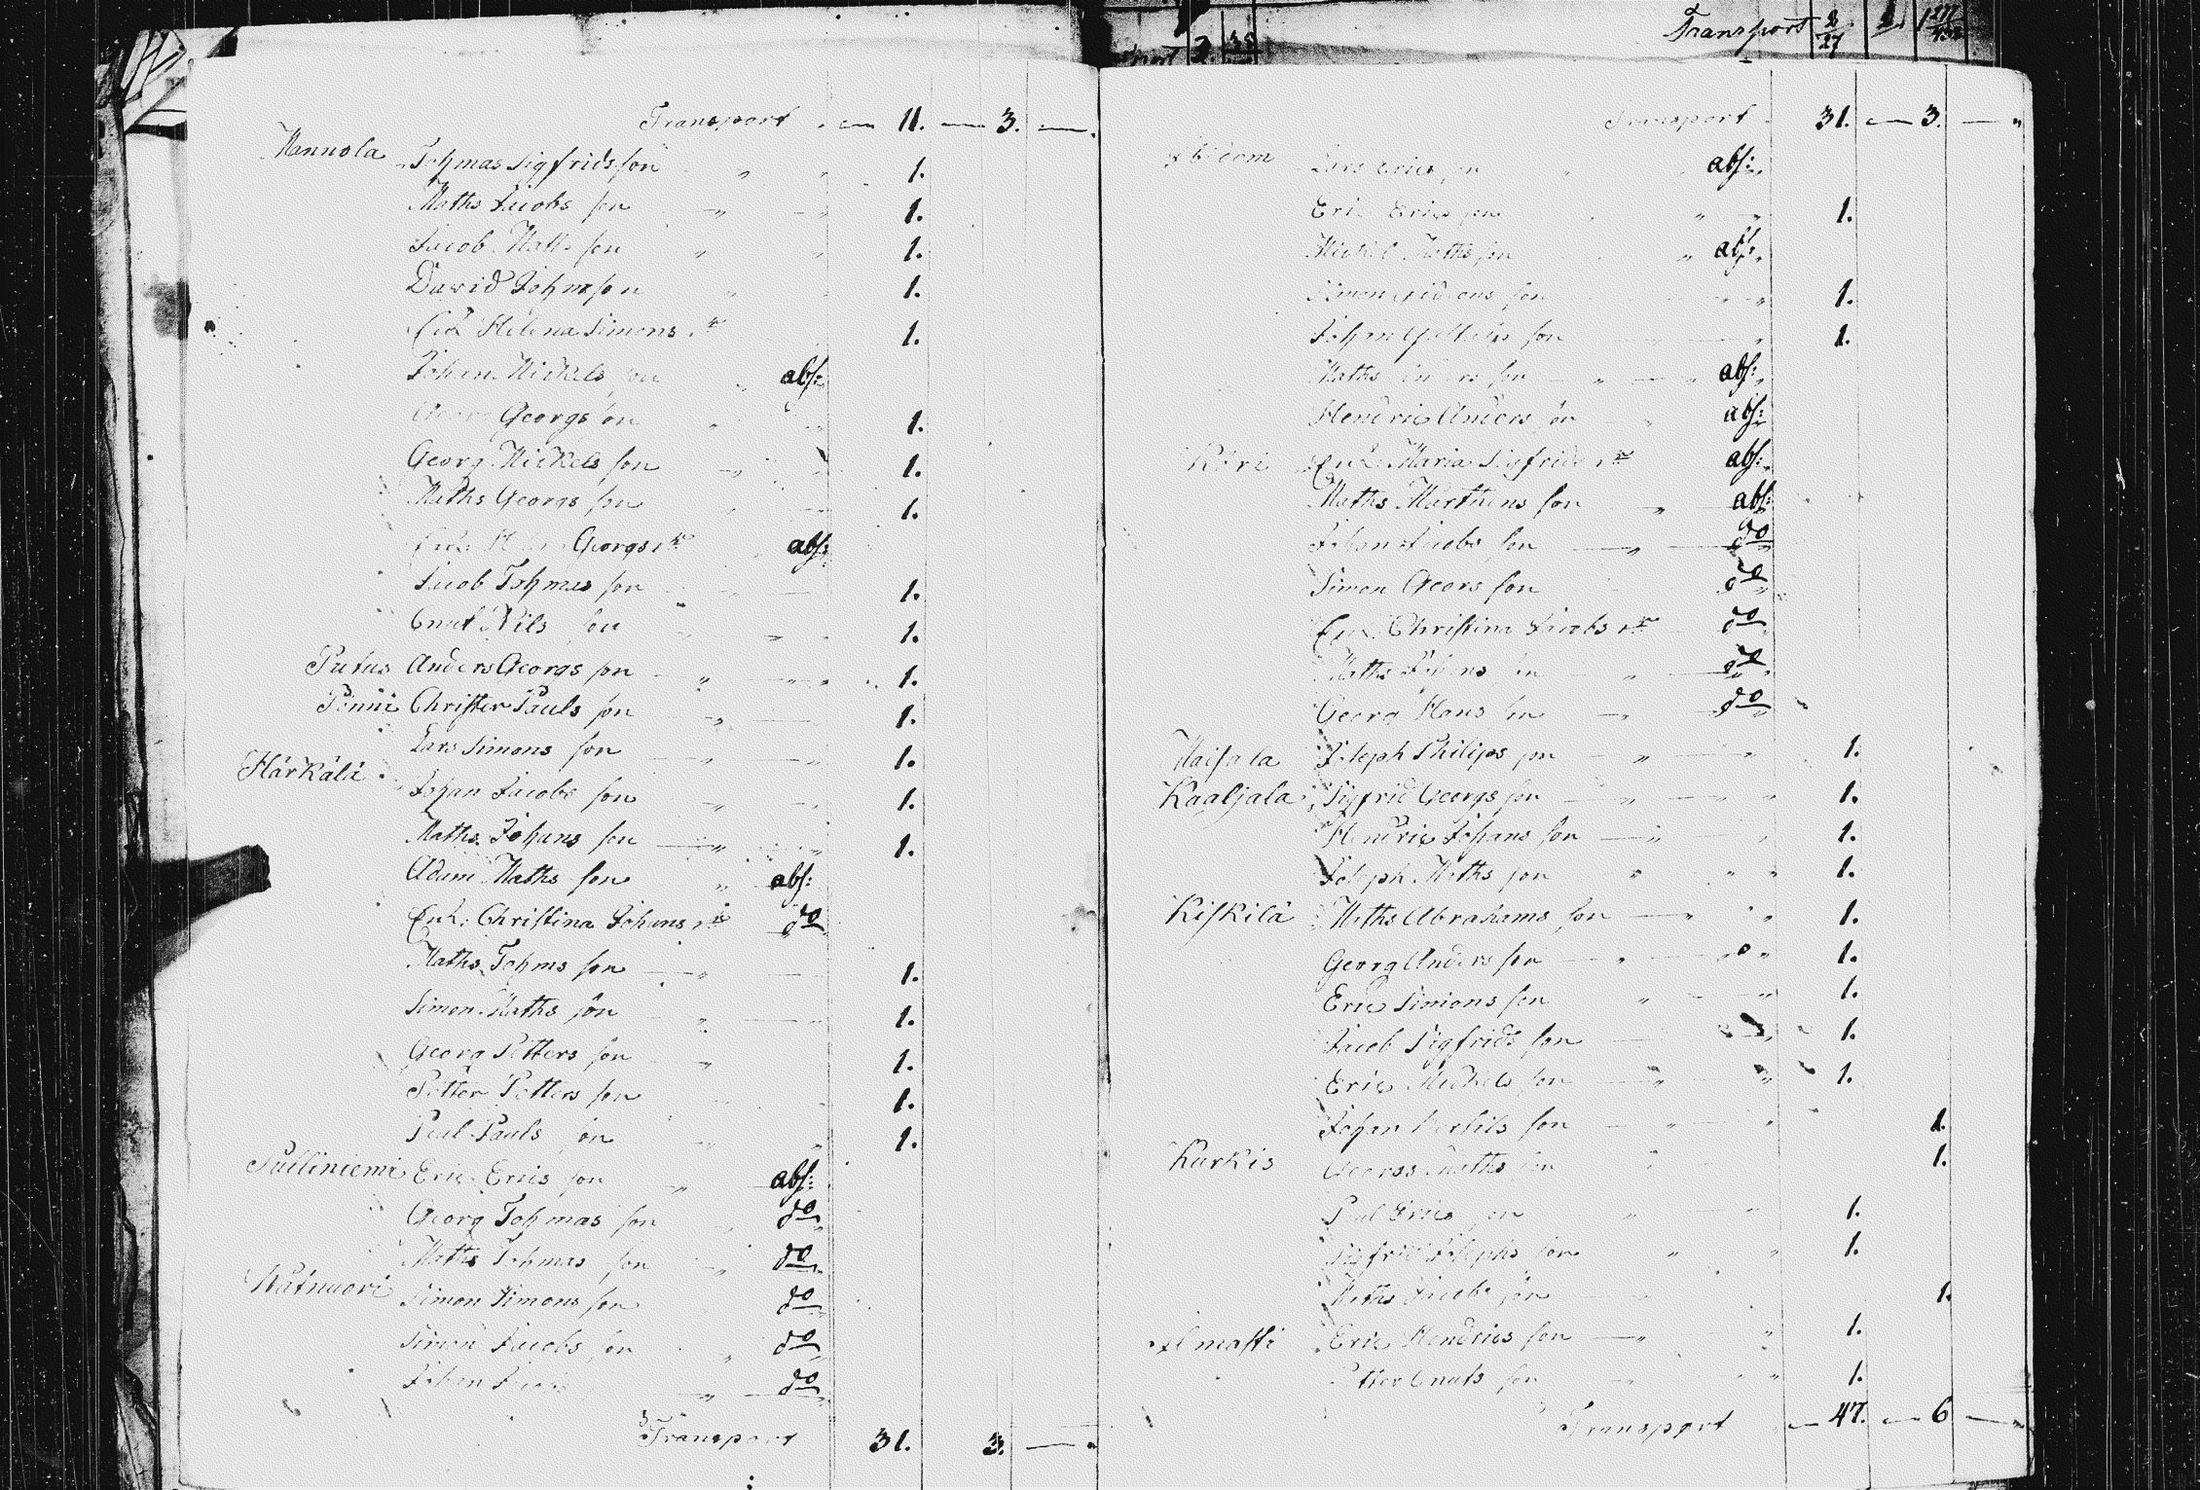 Transport 2/27
Transport . — 11. — 3. —
Nannola Tohmas Sigfridsson 1.
Maths Jacobs son 1.
Jacob Maths son 1.
David Johnsson 1.
Enk Helena Simons dr 1.
Johan Mickels son abs:
Georgs son 1.
Georg Mickels son 1.
Maths Georgs son 1.
Enk: Georgs dr abs:
Jacob Tohmas son 1.
Cnut Nils son 1.
Putus Anders Georgs son 1.
Pennii Christer Pauls son 1.
Lars Simons son 1.
Härkälä Johan Jacobs son 1.
Maths Johans son 1.
Adam Maths son abs:
Enk: Christina Johans dr do
Maths Tohms son 1.
Simon Maths son 1.
Georg Petters son 1.
Petter Petters son 1.
Paul Pauls son 1.
Pulliniemi Eric Erics son abs:
Georg Tohmas son do
Maths Tohmas son do
Simon Simons son do
Simon Jacobs son do
Johan do
Transport 31. 3. —
Transport 31. — 3. —
Lars Erics son abs:
Eric Erics son 1.
Mickel Maths son abs:
Simon Gideons son 1.
Johan son 1.
Maths Anders son abs:
Hendric Anders son abs:
Kori Enk: Maria Sigfrids dr abs:
Maths Marthens son abs:
Johan Jacobs son do
Simon Geors son do
Enk: Christina Jacobs dr do
Maths Johans son do
Georg Hans son do
Maisala Joseph Philips son 1.
Kaaljala Sigfrid Georgs son 1.
Hendric Johans son 1.
Joseph Maths son 1.
Kiskilä Maths Abrahams son 1.
Georg Anders son 1.
Eric Simons son 1.
Jacob Sigfrids son 1.
Eric Mickels son 1.
Johan son 1.
Kurkis Georgs Maths son 1.
Paul Erics son 1.
Sigfrid Josephs son 1.
Maths Jacobs son 1.
Ilmatti Eric Hendrics son 1.
Petter Cnuts son 1.
Transport — 47. — 6 —